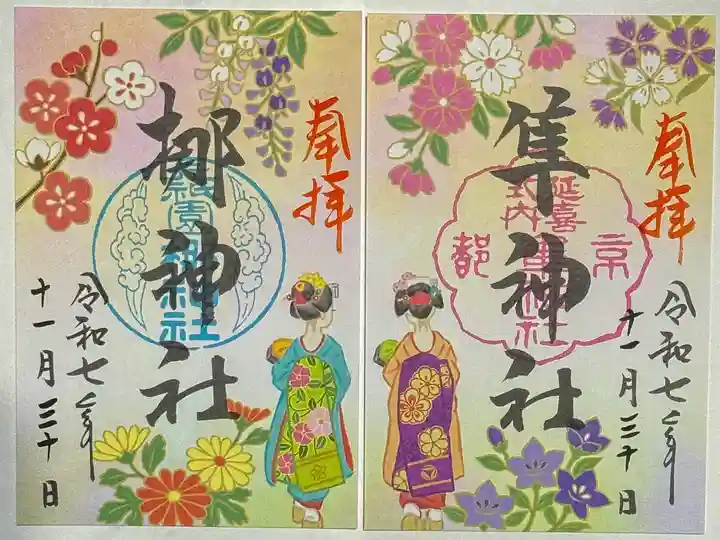 奉拝
梛神社
祇園
梛神社
令和七年
十一月三十日
奉拝
隼神社
延喜
式内
隼神社
京都
令和七年
十一月三十日